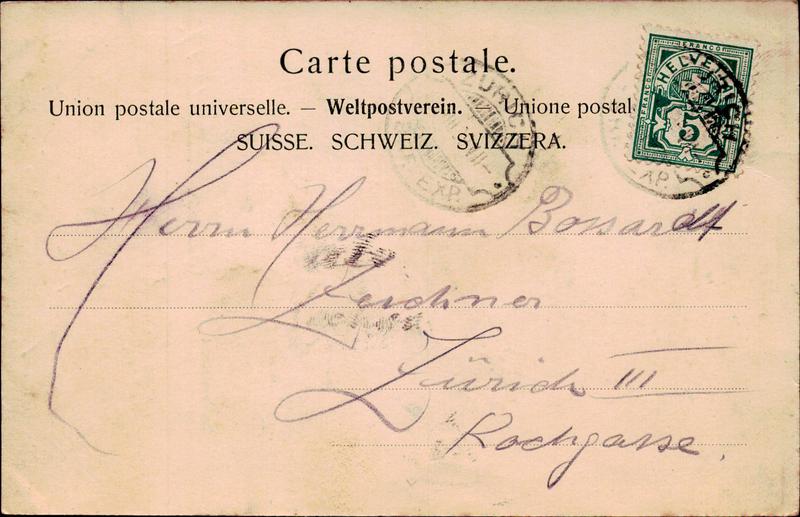 Carte postale.
Union postale universelle. — Weltpostverein. Unione postal
SUISSE. SCHWEIZ. SVIZZERA.
FRANCO
HELVETIA
5
EXP.
EXP.
Herrn Herrmann Bossardt
Zeichner
Zürich III
Kochgasse.